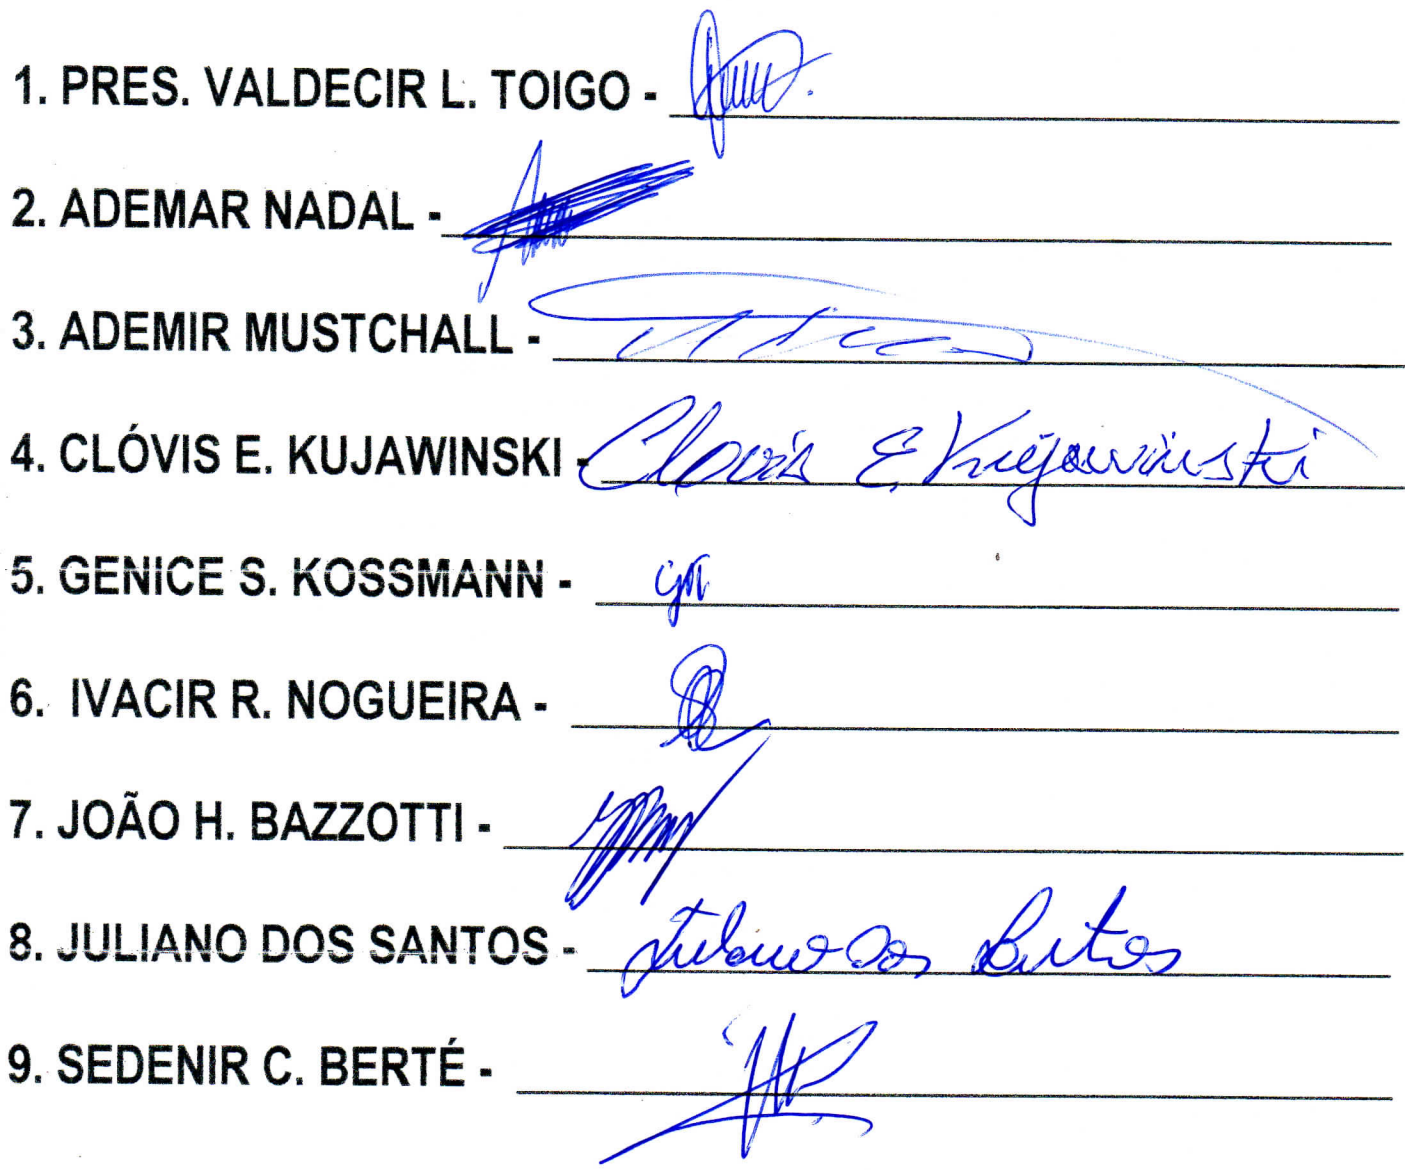 1. PRES. VALDECIR L. TOIGO -
2. ADEMAR NADAL -
3. ADEMIR MUSTCHALL -
4. CLÓVIS E. KUJAWINSKI - Clovis E Kujawinski
5. GENICE S. KOSSMANN -
6. IVACIR R. NOGUEIRA -
7. JOÃO H. BAZZOTTI -
8. JULIANO DOS SANTOS - Juliano dos Santos
9. SEDENIR C. BERTÉ -